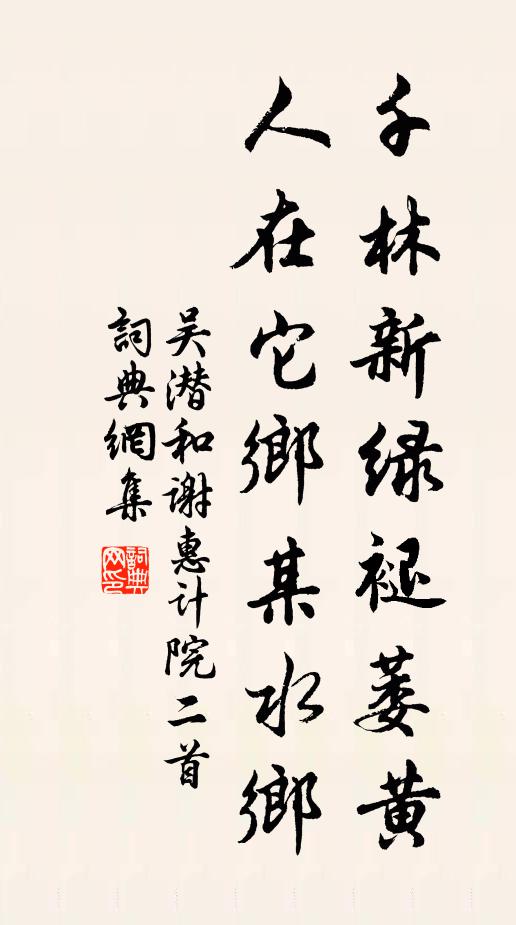 千林新绿褪萎黄
人在它鄉某水鄉
吴潜和谢惠计院二首
詞典網集
詞典网印